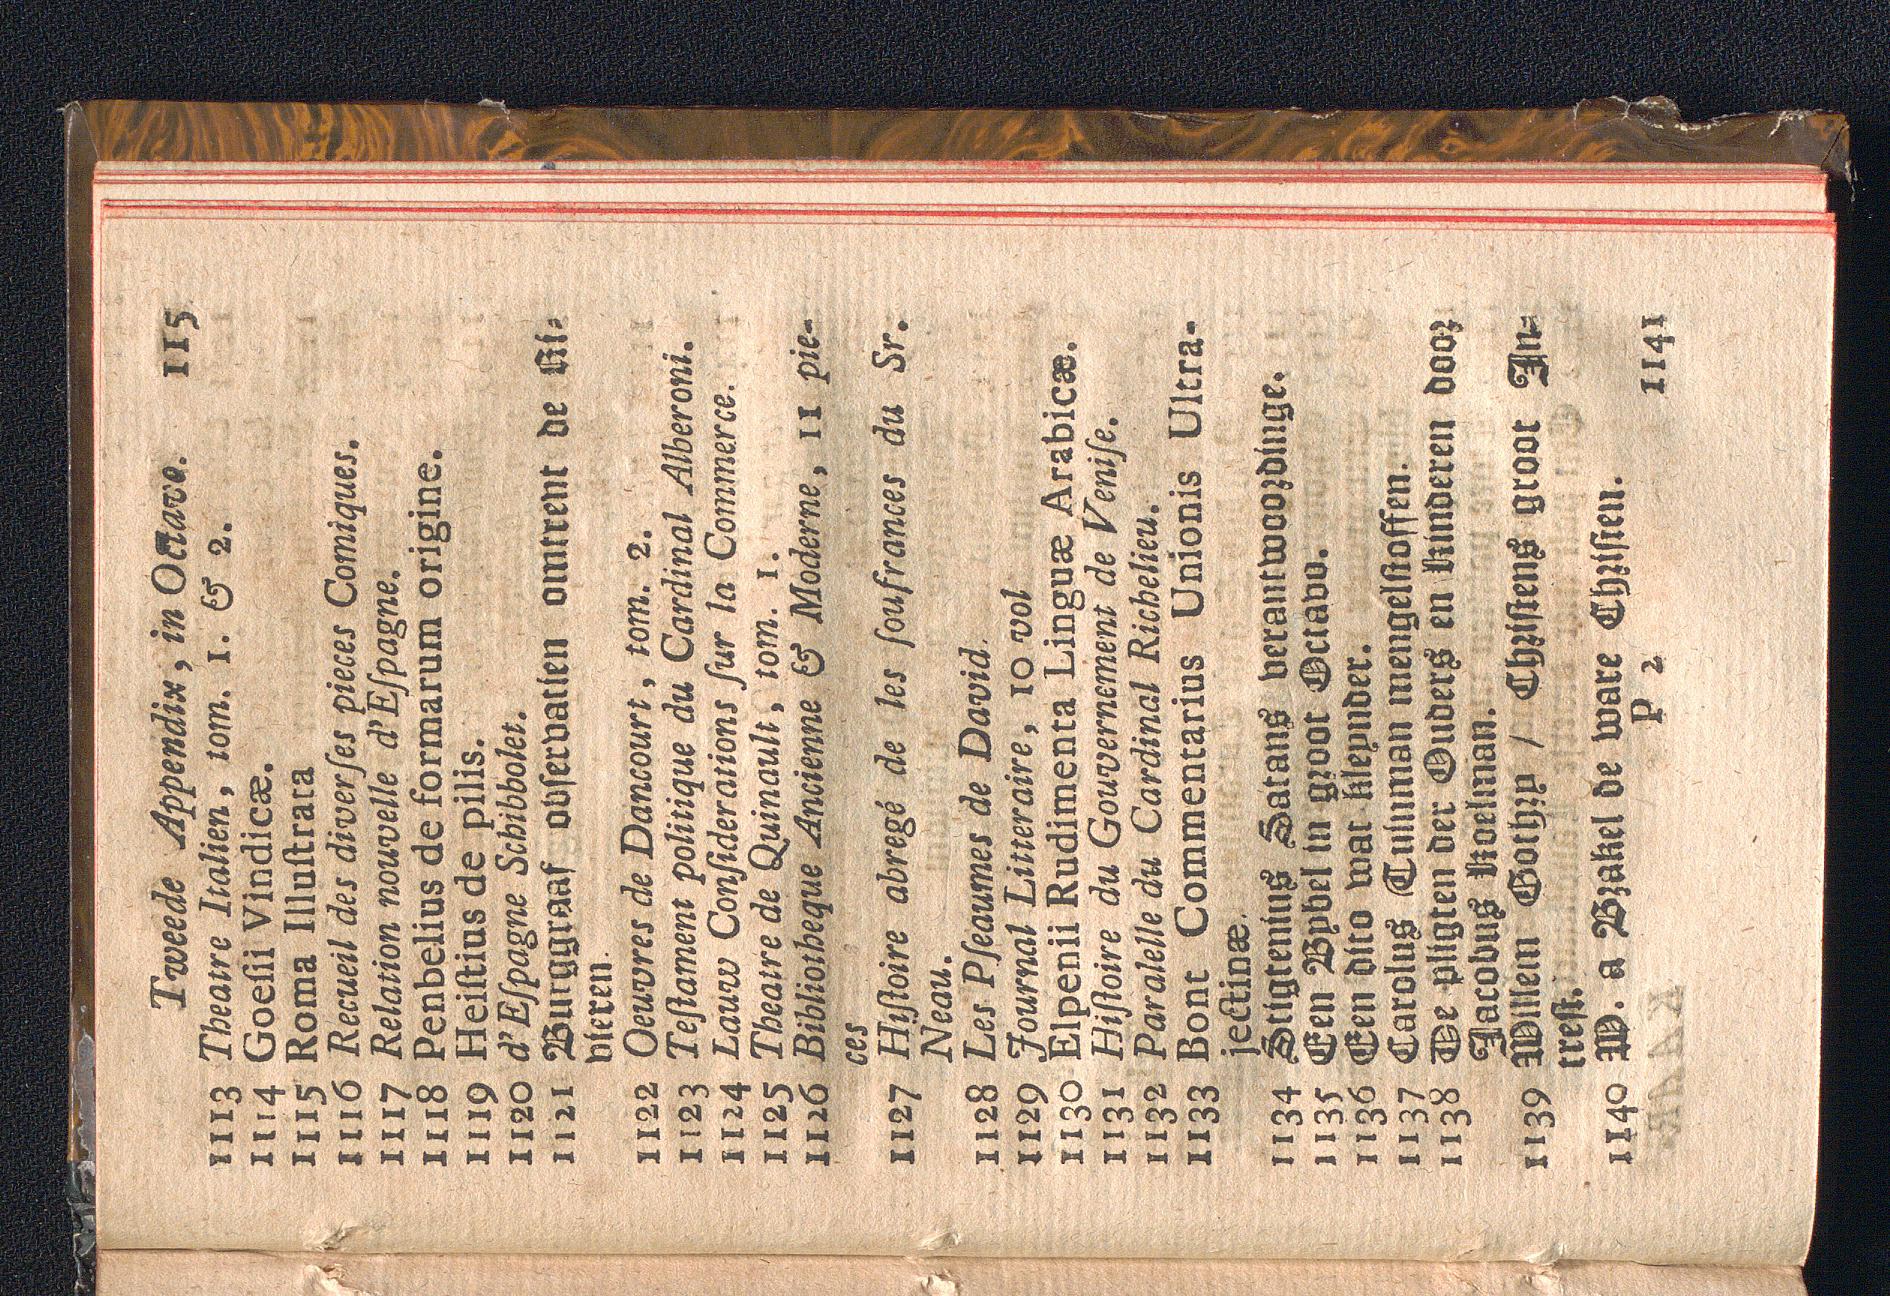 Tweede Appendix, in Octave. 115
1113 Theatre Italien, tom. 1. & 2.
1114 Goesii Vindicæ.
1115 Roma Illuſtrata
1116 Recueil des diverſes pieces Comiques.
1117 Relation nouvelle d'Eſpagne.
1118 Penbelius de formarum origine.
1119 Heiſtius de pilis.
1120 d'Eſpagne Schibbolet.
1121 Burggraaf obſervatien omtrent de Ri-
vieren.
1122 Oeuvres de Dancourt, tom. 2.
1123 Teſtament politique du Cardinal Alberoni.
1124 Lauw Conſiderations ſur la Commerce.
1125 Theatre de Quinault, tom. 1.
1126 Bibliotheque Ancienne & Moderne, 11 pie-
ces
1127 Hiſtoire abregé de les ſoufrances du Sr.
Neau.
1128 Les Pſeaumes de David.
1129 Journal Litteraire, 10 vol
1130 Elpenii Rudimenta Linguæ Arabicæ.
1131 Hiſtoire du Gouvernement de Veniſe.
1132 Paralelle du Cardinal Richelieu.
1133 Bont Commentarius Unionis Ultra-
jectinæ.
1134 Stigtenius Satans verantwoordinge.
1135 Een Bybel in groot Octavo.
1136 Een dito wat kleynder.
1137 Carolus Tuinman mengelſtoffen.
1138 De pligten der Ouders en Kinderen door
Jacobus Koelman.
1139 Willem Gothry / Chriſtens groot In-
treſt.
1140 W. a Brakel de ware Chriſten.
P 2 1141